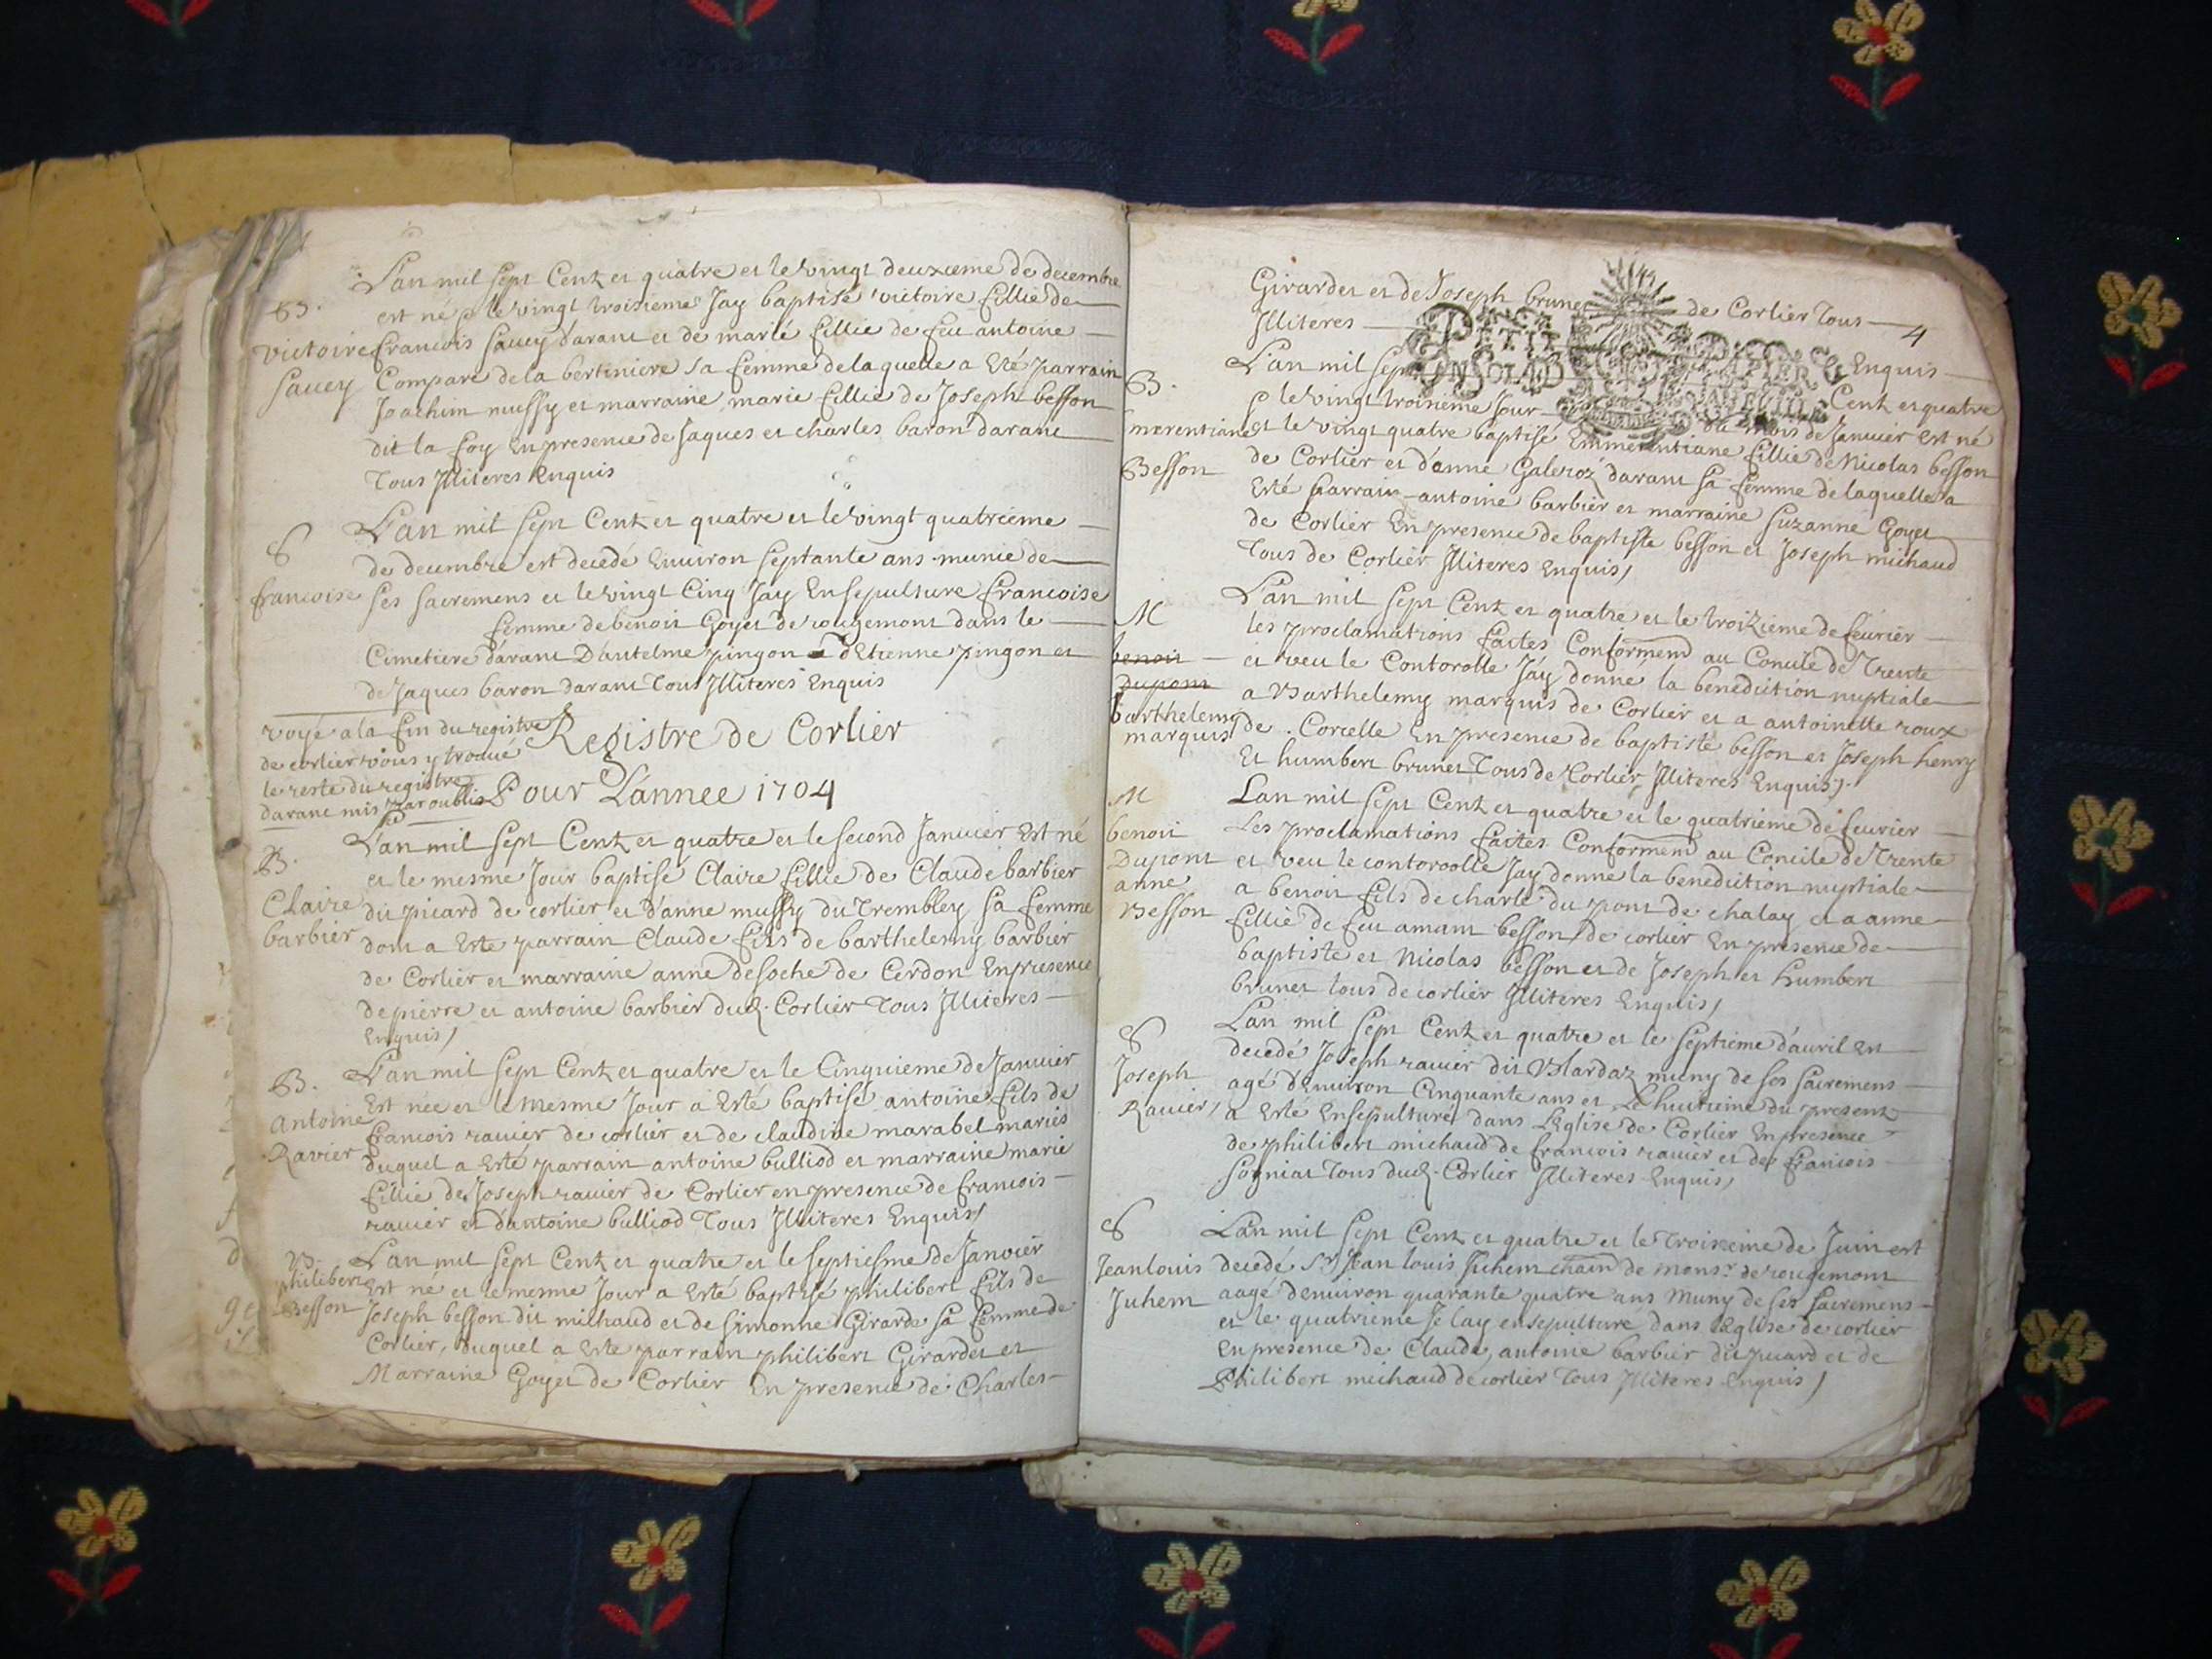 L'an mil sept Cent et quatre et le vingt deuxieme de decembre
B. est né et le vingt troisieme Jay baptisé victoire fillie de
victoire francois saucy darant et de marie fillie de feu antoine
saucy Compare de la bertiniere sa femme de laquelle a Eté parrain
Joachim mussy et marraine marie fillie de Joseph besson
dit la foy En presence de Jaques et charles baron darant
Tous Illiteres Enquis
L'an mil sept Cent et quatre et le vingt quatrieme
S de decembre est decedé Environ septante ans munie de
francoise ses sacremens et le vingt Cinq Jay Ensepulture francoise
femme de benoit Goyet de rougemont dans le
Cimetiere darant D'antelme pingon d'Etienne pingon et
de Jaques baron darant Tous Illiteres Enquis
voyé a la fin du registre
de corlier vous y trouvé
le reste du registre
darant mis par oublis
Registre de Corlier
Pour L'annee 1704
L'an mil sept Cent et quatre et le second Janvier Est né
B. et le mesme Jour baptisé Claire fillie de Claude barbier
Claire dit picard de corlier et d'anne mussy du Trembley sa femme
barbier dont a Esté parrain Claude fils de barthelemy barbier
de Corlier et marraine anne desoche de Cerdon En presence
de pierre et antoine barbier dud. Corlier Tous Illiteres
Enquis /
B. L'an mil sept Cent et quatre et le Cinquieme de Janvier
Antoine Est née et le mesme Jour a Esté baptisé antoine fils de
Ravier francois ravier de corlier et de claudine marabel mariés
duquel a Esté parrain antoine bulliod et marraine marie
fillie de Joseph ravier de Corlier en presence de francois
ravier et d'antoine bulliod Tous Illiteres Enquis /
B. L'an mil sept Cent et quatre et le septiesme de Janvier
philibert Est né et le mesme Jour a Esté baptisé philibert fils de
Besson Joseph besson dit michaud et de simonne Girarde sa femme de
Corlier, duquel a Esté parrain philibert Girardet et
Marraine Goyet de Corlier En presence de Charles
Girardet et de Joseph brunet de Corlier Tous
4
Illiteres Enquis
PETIT PAPIER
L'an mil sept Cent et quatre
B. et le vingt troisieme Jour du mois de Janvier Est né
merentiane et le vingt quatre baptisé Emmerentiane fillie de Nicolas besson
Besson de Corlier et d'anne Galeroz darant sa femme de laquelle a
Esté parrain antoine barbier et marraine suzanne Goyet
de Corlier En presence de baptiste besson et Joseph michaud
Tous de Corlier Illiteres Enquis /
L'an mil sept Cent et quatre et le troizieme de fevrier
M les proclamations faites Conformend au Concile de Trente
benoit et veu le Contorolle Jay donné la benediction nuptiale
Dupont a Barthelemy marquis de Corlier et a antoinette roux
barthelemy de Corcelle En presence de baptiste besson et Joseph henry
marquis Et humbert brunet Tous de Corlier, Illiteres Enquis /.
M Lan mil sept Cent et quatre et le quatrieme de fevrier
benoit Les proclamations faites Conformend au Concile de Trente
Dupont et veu le contoroolle Jay donné la benediction nuptiale
anne a benoit fils de charle du pont de chalay et a anne
Besson fillie de feu amant besson de corlier En presence de
baptiste et Nicolas besson et de Joseph et humbert
brunet tous de corlier Illiteres Enquis /
Lan mil sept Cent et quatre et le septieme d'avril Est
S decedé Joseph ravier dit Blardaz muny de ses sacremens
Joseph agé d'Environ Cinquante ans et Le huitieme du present
Ravier / a Esté Ensepulturé dans L'Eglise de Corlier En presence
de philibert michaud de francois ravier et de francois
sogniat Tous dud. Corlier Illiteres Enquis /
S L'an mil sept Cent et quatre et le Troisieme de Juin est
Jean louis decedé Sr Jean louis Juhem de monsr de rougemont
Juhem aagé d'environ quarante quatre ans Muny de ses sacremens
et le quatrieme Je lay ensepulture dans l'Eglise de corlier
en presence de Claude, antoine barbier dit picard et de
Philibert michaud de corlier Tous Illiteres Enquis /